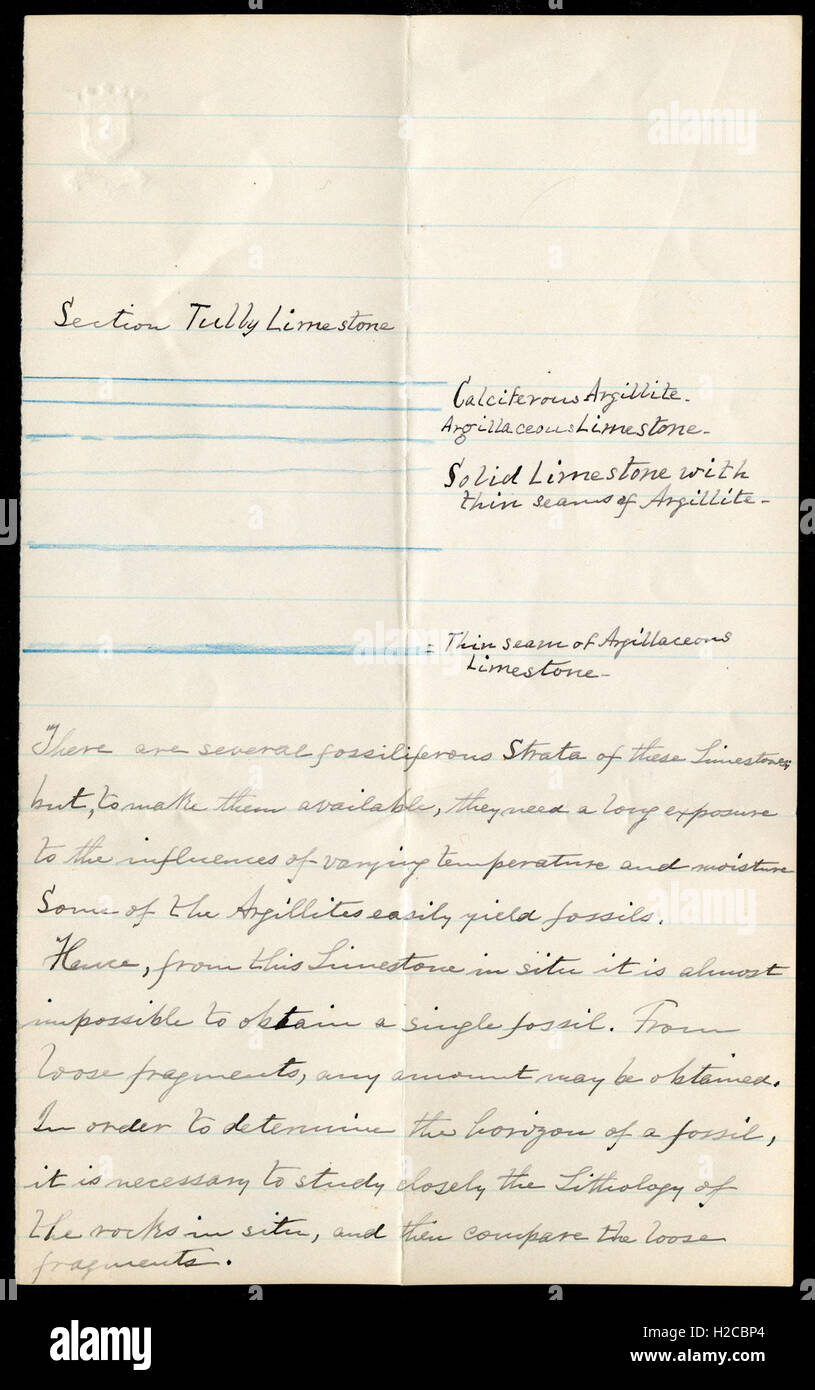 Section Tully Limestone
Calciferous Argillite.
Argillaceous Limestone.
Solid Limestone with
thin seams of Argillite.
Thin seam of Argillaceous
Limestone.
There are several fossiliferous Strata of these Limestones;
but, to make them available, they need a long exposure
to the influences of varying temperature and moisture
Some of the Argillites easily yield fossils.
Hence, from this Limestone in situ it is almost
impossible to obtain a single fossil. From
loose fragments, any amount may be obtained.
In order to determine the horizon of a fossil,
it is necessary to study closely the Lithology of
the rocks in situ, and then compare the loose
fragments.
alamy
alamy
alamy
alamy
Image ID: H2CBP4
www.alamy.com